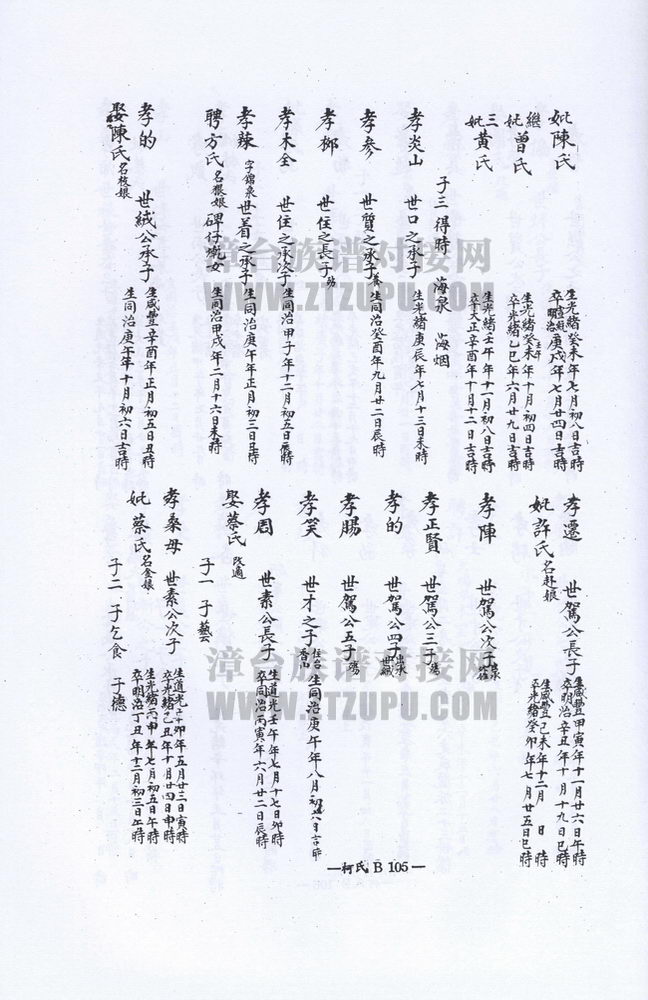 妣陳氏 生光緒癸未年七月初八日吉時
卒明治庚戌年七月廿四日吉時
繼妣曾氏 生光緒癸未年十月初四日吉時
卒光緒乙巳年六月廿九日吉時
三妣黃氏 生光緒壬午年十一月初八日吉時
卒大正辛酉年十月十二日吉時
子三 得時 海泉 海烟
孝炎山 世口之承子 生光緒庚辰年七月十三日未時
孝參 世質之承子 生同治癸酉年九月廿二日辰時
孝柳 世住之長子
孝木全 世住之承次子 生同治甲子年十二月初五日辰時
孝辣 字錦泉 世着之承子 生同治庚午年正月初三日巳時
聘方氏 碑仔 女 生同治甲戌年二月十六日未時
孝的 世絨公承子 生咸豐辛酉年正月初五日丑時
娶陳氏 名枝娘 生同治庚午年十月初六日吉時
孝遷 世駕公長子 生咸豐甲寅年十一月廿六日午時
卒明治辛丑年十月十九日巳時
妣許氏 名赴娘 生咸豐己未年十二月 日 時
卒光緒癸卯年七月廿五日巳時
孝陣 世駕公次子 出承
孝正賢 世駕公三子
孝的 世駕公四子 出承世絨
孝賜 世駕公五子
孝笑 世才之子 住台香山 生同治庚午年八月初 日吉時
孝周 世素公長子 生道光壬午年七月十七日卯時
卒同治丙寅年六月廿二日辰時
娶蔡氏 改適
子一 子藝
孝桑母 世素公次子 生道光 卯年五月廿三日寅時
卒光緒己丑年十月廿四日申時
妣蔡氏 名金娘 生光緒丙申年七月初五日午時
卒明治丁丑年十二月初三日午時
子二 子乞食 子德
—柯氏 B 105—
漳台族谱对接网
WWW.ZTZUPU.COM
漳台族谱对接网
WWW.ZTZUPU.COM